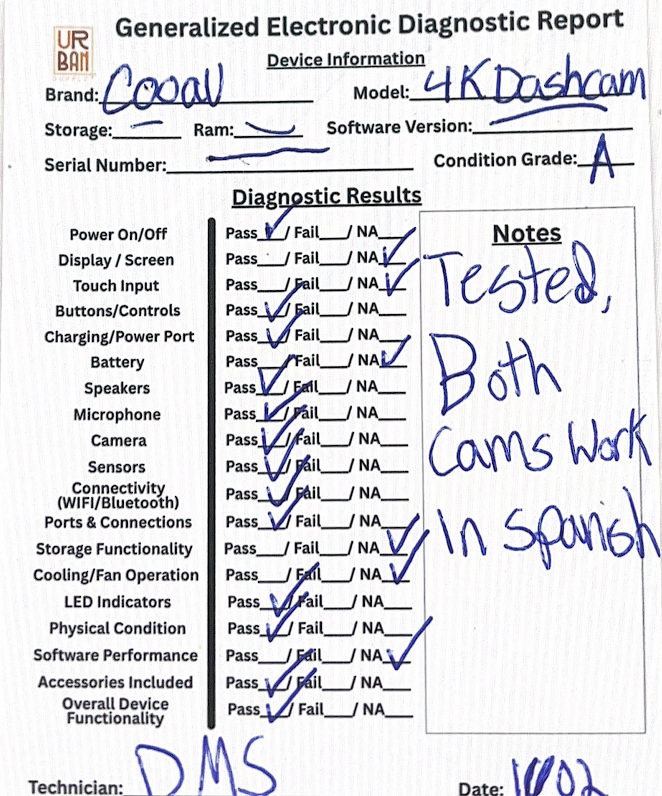 Generalized Electronic Diagnostic Report
UR
BAN
SUPPLY
Device Information
Brand: Cooau Model: 4K Dashcam
Storage: — Ram: — Software Version:
Serial Number: — Condition Grade: A
Diagnostic Results
Power On/Off Pass ✓ / Fail___/ NA___
Display / Screen Pass___/ Fail___/ NA ✓
Touch Input Pass___/ Fail___/ NA ✓
Buttons/Controls Pass ✓ / Fail___/ NA___
Charging/Power Port Pass ✓ / Fail___/ NA___
Battery Pass___/ Fail___/ NA ✓
Speakers Pass ✓ / Fail___/ NA___
Microphone Pass ✓ / Fail___/ NA___
Camera Pass ✓ / Fail___/ NA___
Sensors Pass ✓ / Fail___/ NA___
Connectivity
(WIFI/Bluetooth) Pass ✓ / Fail___/ NA___
Ports & Connections Pass ✓ / Fail___/ NA___
Storage Functionality Pass___/ Fail___/ NA ✓
Cooling/Fan Operation Pass___/ Fail___/ NA ✓
LED Indicators Pass ✓ / Fail___/ NA___
Physical Condition Pass ✓ / Fail___/ NA___
Software Performance Pass___/ Fail___/ NA ✓
Accessories Included Pass ✓ / Fail___/ NA___
Overall Device
Functionality Pass ✓ / Fail___/ NA___
Notes
Tested,
Both
Cams Work
In Spanish
Technician: DMS Date: